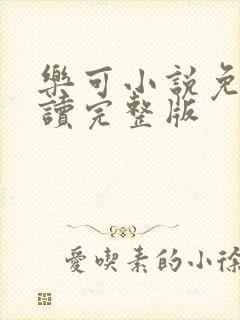 樂可小說免
讀完整版
愛喫素的小徐